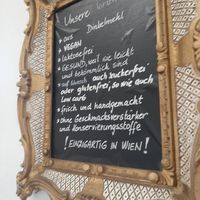 Unsere
* aus Dinkelmehl
* VEGAN
* laktosefrei
* GESUND, weil sie leicht
und bekömmlich sind
* auf Wunsch auch zuckerfrei
oder glutenfrei, so wie auch
Low carb
* frisch und handgemacht
* ohne Geschmacksverstärker
und Konservierungsstoffe
! EINZIGARTIG IN WIEN !